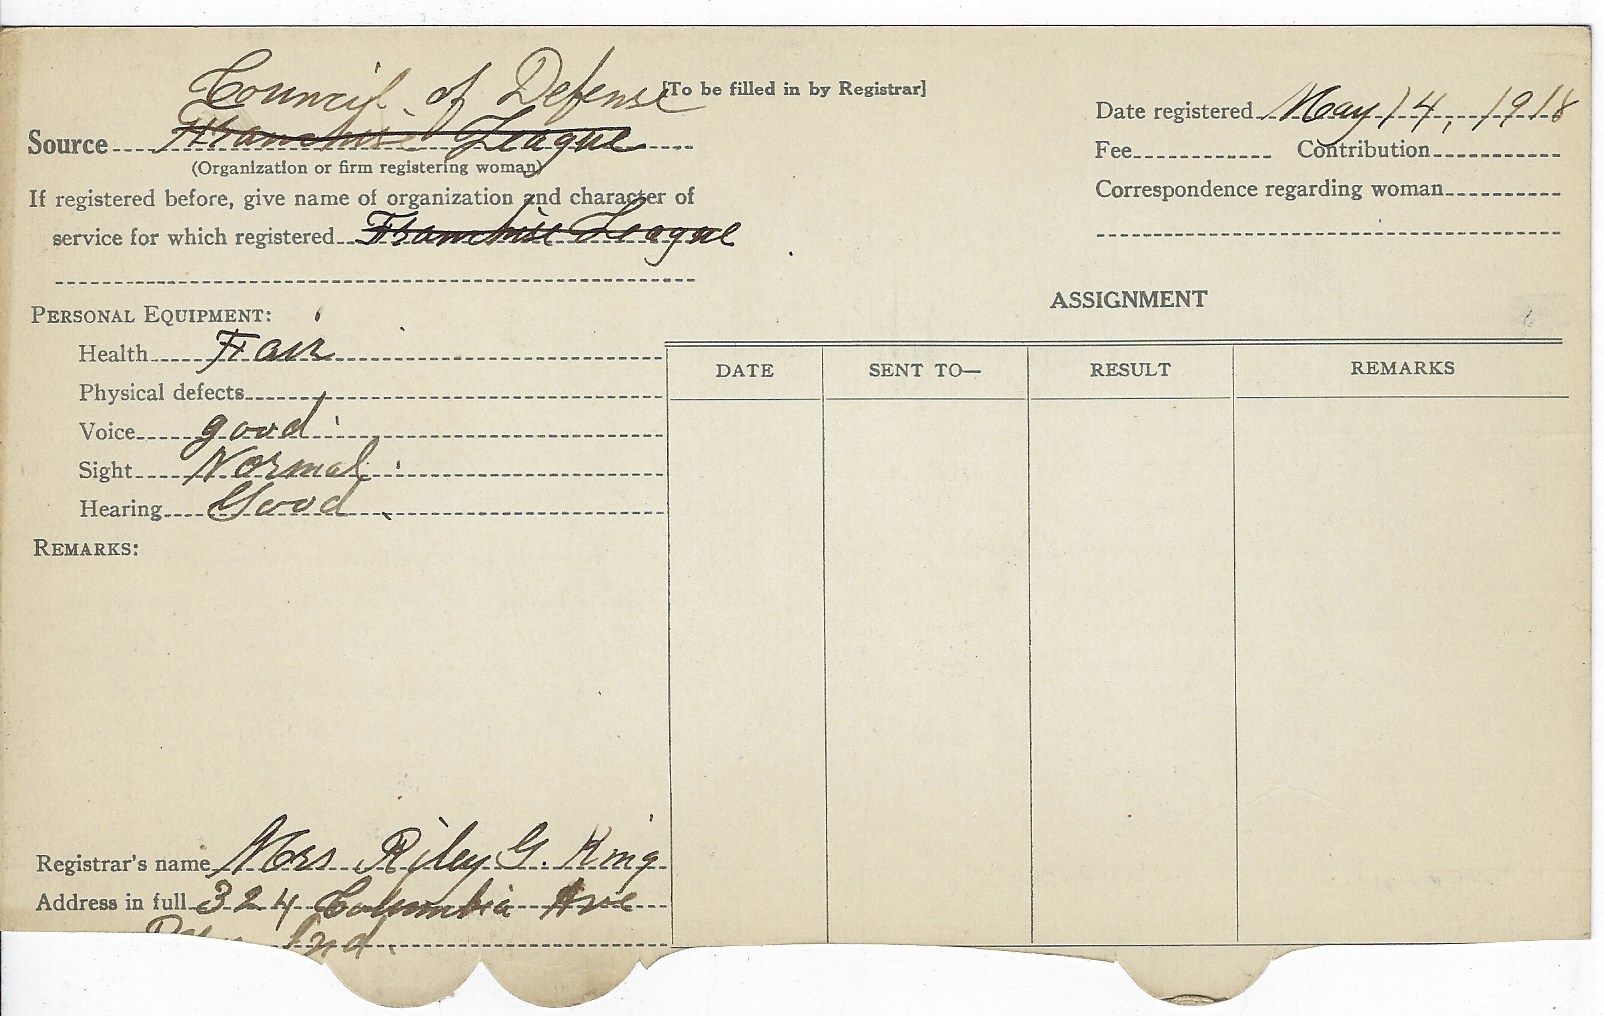 Council of Defense
[To be filled in by Registrar]
Source Franchise League
(Organization or firm registering woman)
If registered before, give name of organization and character of
service for which registered Franchise League
Date registered May 14, 1918
Fee Contribution
Correspondence regarding woman
PERSONAL EQUIPMENT:
Health Fair
Physical defects
Voice good
Sight Normal
Hearing Good
REMARKS:
ASSIGNMENT
DATE SENT TO— RESULT REMARKS
Registrar's name Mrs Riley G. King
Address in full 324 Columbia Ave
Ind.